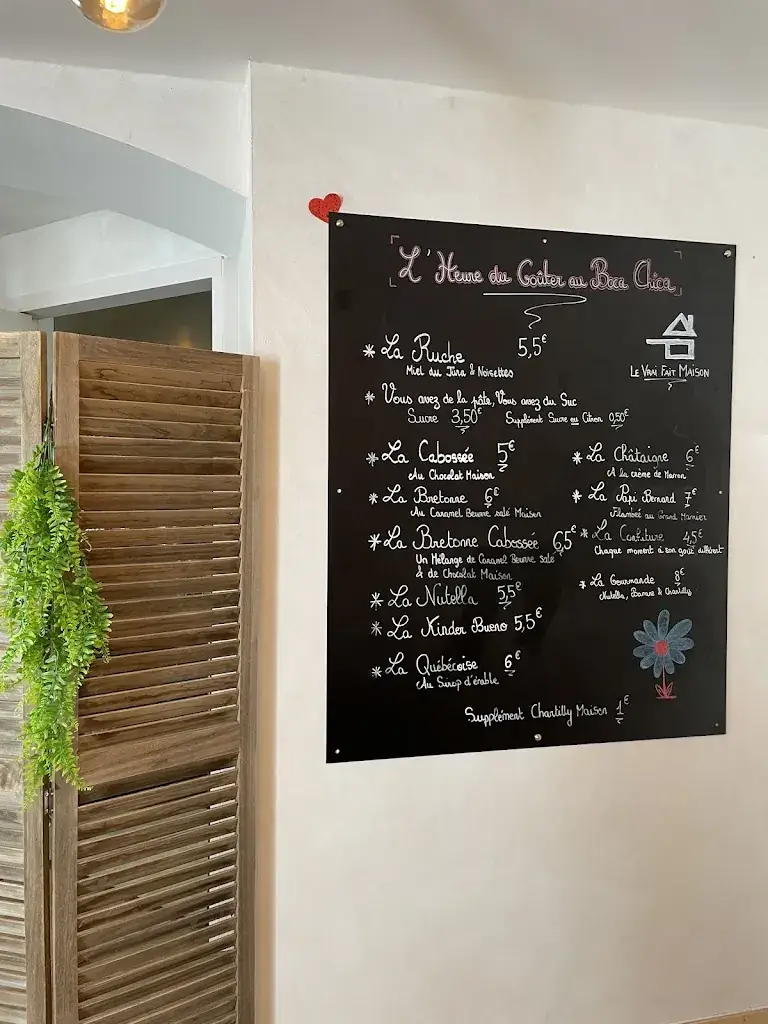 L'Heure du Goûter au Boca Chica
* La Ruche 5,5€
Miel du Jura & Noisettes
LE VRAI FAIT MAISON
* Vous avez de la pâte, Vous avez du Suc
Sucre 3,50€ Supplément Sucre ou Citron 0,50€
* La Cabossée 5€
Au Chocolat Maison
* La Bretonne 6€
Au Caramel Beurre salé Maison
* La Bretonne Cabossée 6,5€
Un Mélange de Caramel Beurre salé
& de Chocolat Maison
* La Nutella 5,5€
* La Kinder Bueno 5,5€
* La Québécoise 6€
Au Sirop d'érable
* La Châtaigne 6€
A la crème de Marron
* La Papi Bernard 7€
Flambée au Grand Marnier
* La Confiture 4,5€
Chaque moment à son goût différent
* La Gourmande 8€
Nutella, Banane & Chantilly
Supplément Chantilly Maison 1€